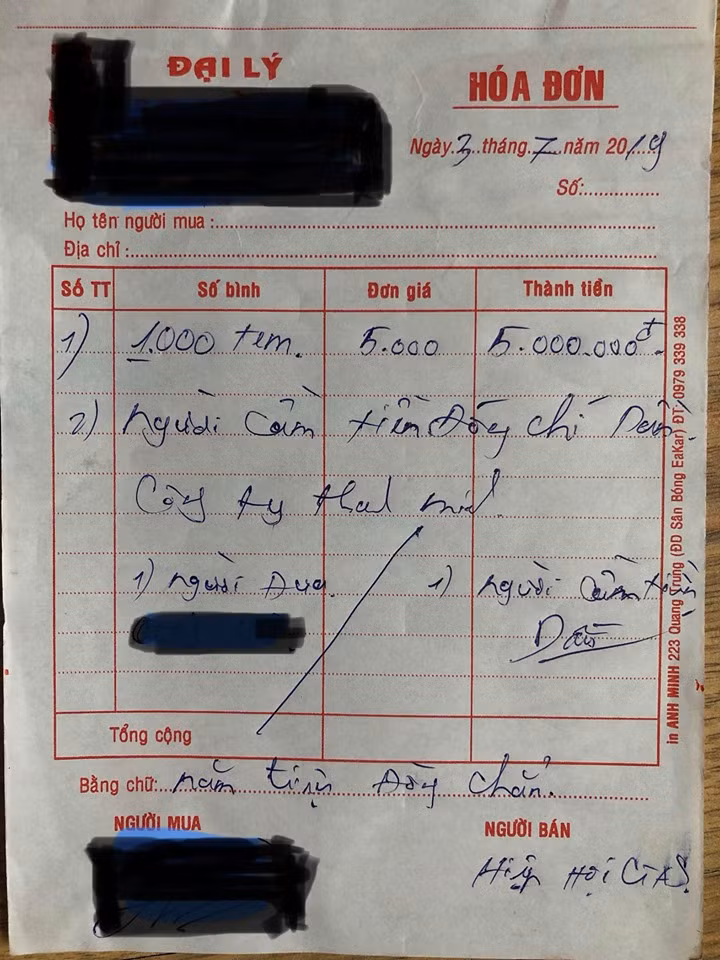 ĐẠI LÝ
HÓA ĐƠN
Ngày 3 tháng 7 năm 2019
Số:
Họ tên người mua :
Địa chỉ :
Số TT Số bình Đơn giá Thành tiền
1) 1.000 tem. 5.000 5.000.000đ
2) Người cầm tiền Đồng chí
Công ty
1) Người Đưa 1) Người cầm tiền
Tổng cộng
Bằng chữ: năm triệu Đồng chẵn.
NGƯỜI MUA NGƯỜI BÁN
Hiệp Hội GAS
in ANH MINH 223 Quang Trung (ĐD Sân Bóng EaKar) ĐT: 0979 339 338